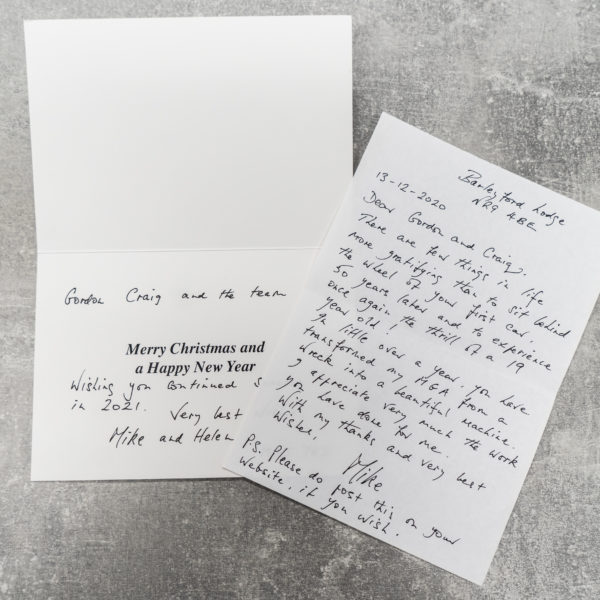 Gordon Craig and the team
Merry Christmas and
a Happy New Year
Wishing you continued S
in 2021.
Very best
Mike and Helen
Barleyford Lodge
NR9 4BE
13-12-2020
Dear Gordon and Craig.
There are few things in life
more gratifying than to sit behind
the wheel of your first car
50 years later and to experience
once again the thrill of a 19
year old!
In little over a year, you have
transformed my MGA from a
wreck into a beautiful machine.
I appreciate very much the work
you have done for me.
With my thanks and very best
wishes,
Mike
P.S. Please do post this on your
website, if you wish.